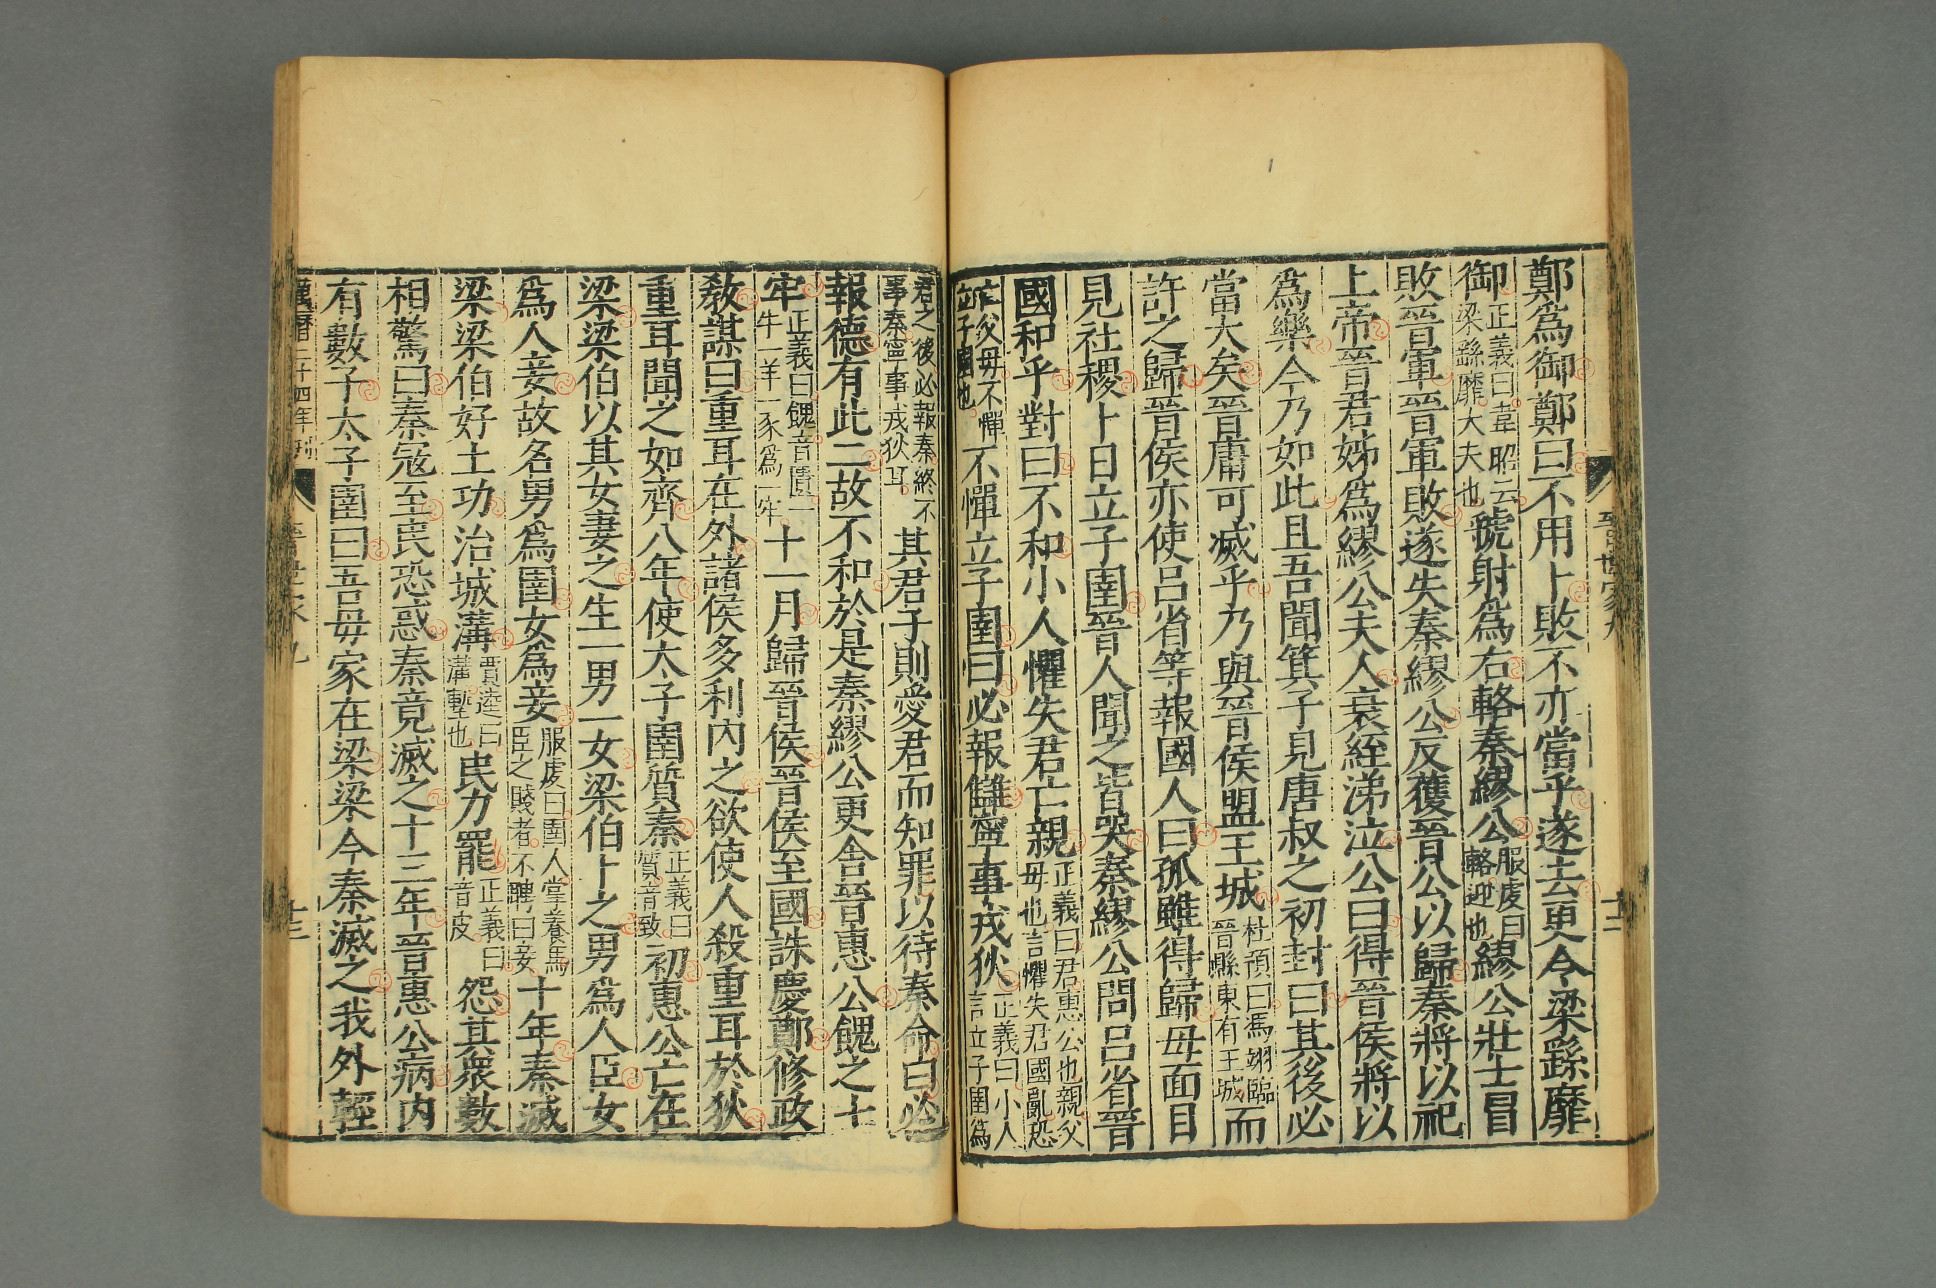 晉世家九
十二
鄭爲御鄭曰不用卜敗不亦當乎遂去更令梁繇靡
御正義曰韋昭云梁繇靡大夫也虢射爲右輅秦繆公服虔曰輅迎也繆公壯士冒
敗晉軍晉軍敗遂失秦繆公反獲晉公以歸秦將以祀
上帝晉君姊爲繆公夫人衰絰涕泣公曰得晉侯將以
爲樂今乃如此且吾聞箕子見唐叔之初封曰其後必
當大矣晉庸可滅乎乃與晉侯盟王城杜預曰馮翊臨晉縣東有王城而
許之歸晉侯亦使呂省等報國人曰孤雖得歸毋面目
見社稷卜日立子圉晉人聞之皆哭秦繆公問呂省晉
國和乎對曰不和小人懼失君亡親正義曰君惠公也親父母也言懼失君國亂恐
亡父母不憚立子圉也不憚立子圉曰必報讎寧事戎狄正義曰小人言立子圉爲
君之後必報秦終不事秦寧事戎狄耳其君子則愛君而知罪以待秦命曰必
報德有此二故不和於是秦繆公更舍晉惠公餽之七
牢正義曰餽音匱一牛一羊一豕爲一牢十一月歸晉侯晉侯至國誅慶鄭修政
教謀曰重耳在外諸侯多利內之欲使人殺重耳於狄
重耳聞之如齊八年使太子圉質秦正義曰質音致初惠公亡在
梁梁伯以其女妻之生一男一女梁伯卜之男爲人臣女
爲人妾故名男爲圉女爲妾服虔曰圉人掌養馬臣之賤者不聘曰妾十年秦滅
梁梁伯好土功治城溝賈逵曰溝塹也民力罷正義曰音皮怨其衆數
相驚曰秦寇至民恐惑秦竟滅之十三年晉惠公病內
有數子太子圉曰吾母家在梁梁今秦滅之我外輕
萬曆二十四年刊
晉世家九
十三